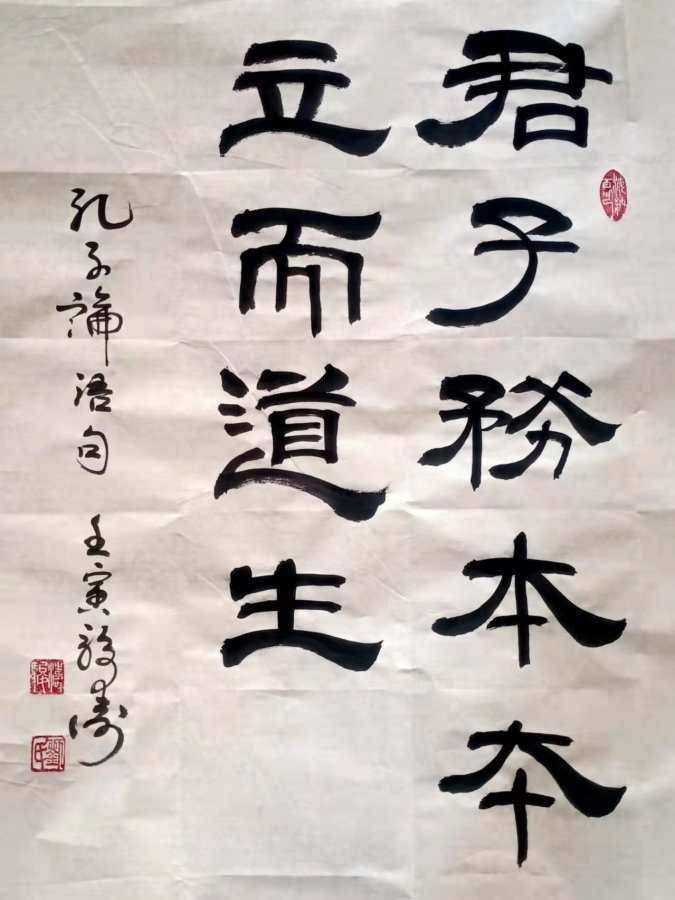 君子務本本
立而道生
孔子論語句 壬寅